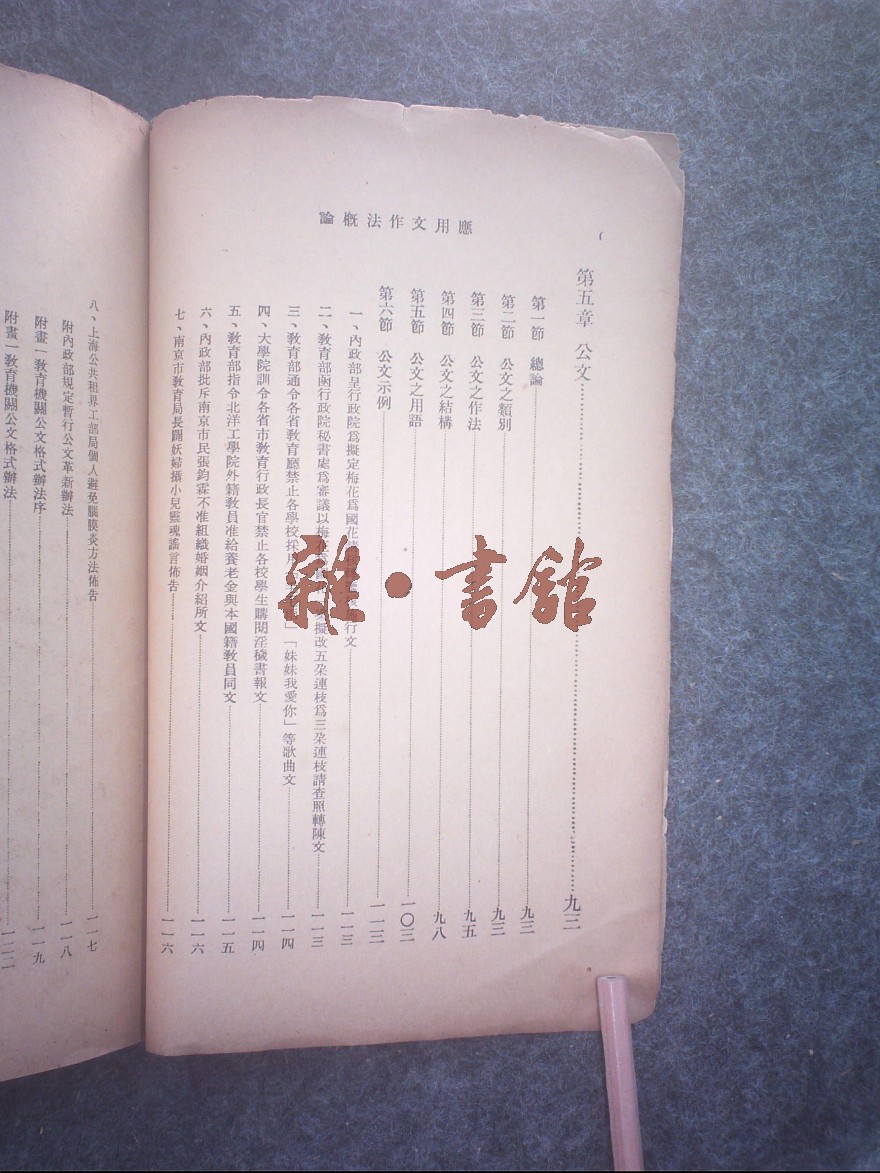 應用文作法概論
第五章 公文……九三
第一節 總論……九三
第二節 公文之類別……九三
第三節 公文之作法……九五
第四節 公文之結構……九八
第五節 公文之用語……一〇三
第六節 公文示例……一一三
一、內政部呈行政院爲擬定梅花爲國花行文……一一三
二、教育部函行政院秘書處爲審議以梅花擬改五朶連枝爲三朶連枝請查照轉陳文……一一三
三、教育部通令各省教育廳禁止各學校採用」「妹妹我愛你」等歌曲文……一一四
四、大學院訓令各省市教育行政長官禁止各校學生購閱淫穢書報文……一一四
五、教育部指令北洋工學院外籍教員准給養老金與本國籍教員同文……一一五
六、內政部批斥南京市民張鈞霖不准組織婚姻介紹所文……一一六
七、南京市教育局長闢妖婦攝小兒靈魂謠言佈告……一一六
八、上海公共租界工部局個人避免腦膜炎方法佈告……一一七
附內政部規定暫行公文革新辦法……一一八
附畫一教育機關公文格式辦法序……一一九
附畫一教育機關公文格式辦法……一二二
雜·書館